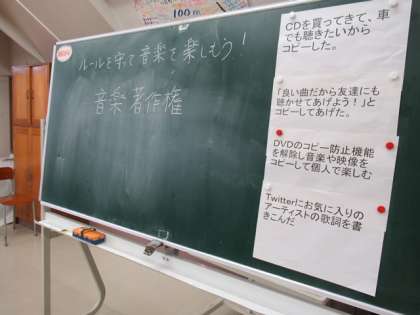 100m
ルールを守って音楽を楽しもう!
音楽著作権
CDを買ってきて、車
でも聴きたいから
コピーした。
「良い曲だから友達にも
聴かせてあげよう!」と
コピーしてあげた。
DVDのコピー防止機能
を解除し音楽や映像を
コピーして個人で楽しむ
Twitterにお気に入りの
アーティストの歌詞を書
きこんだ